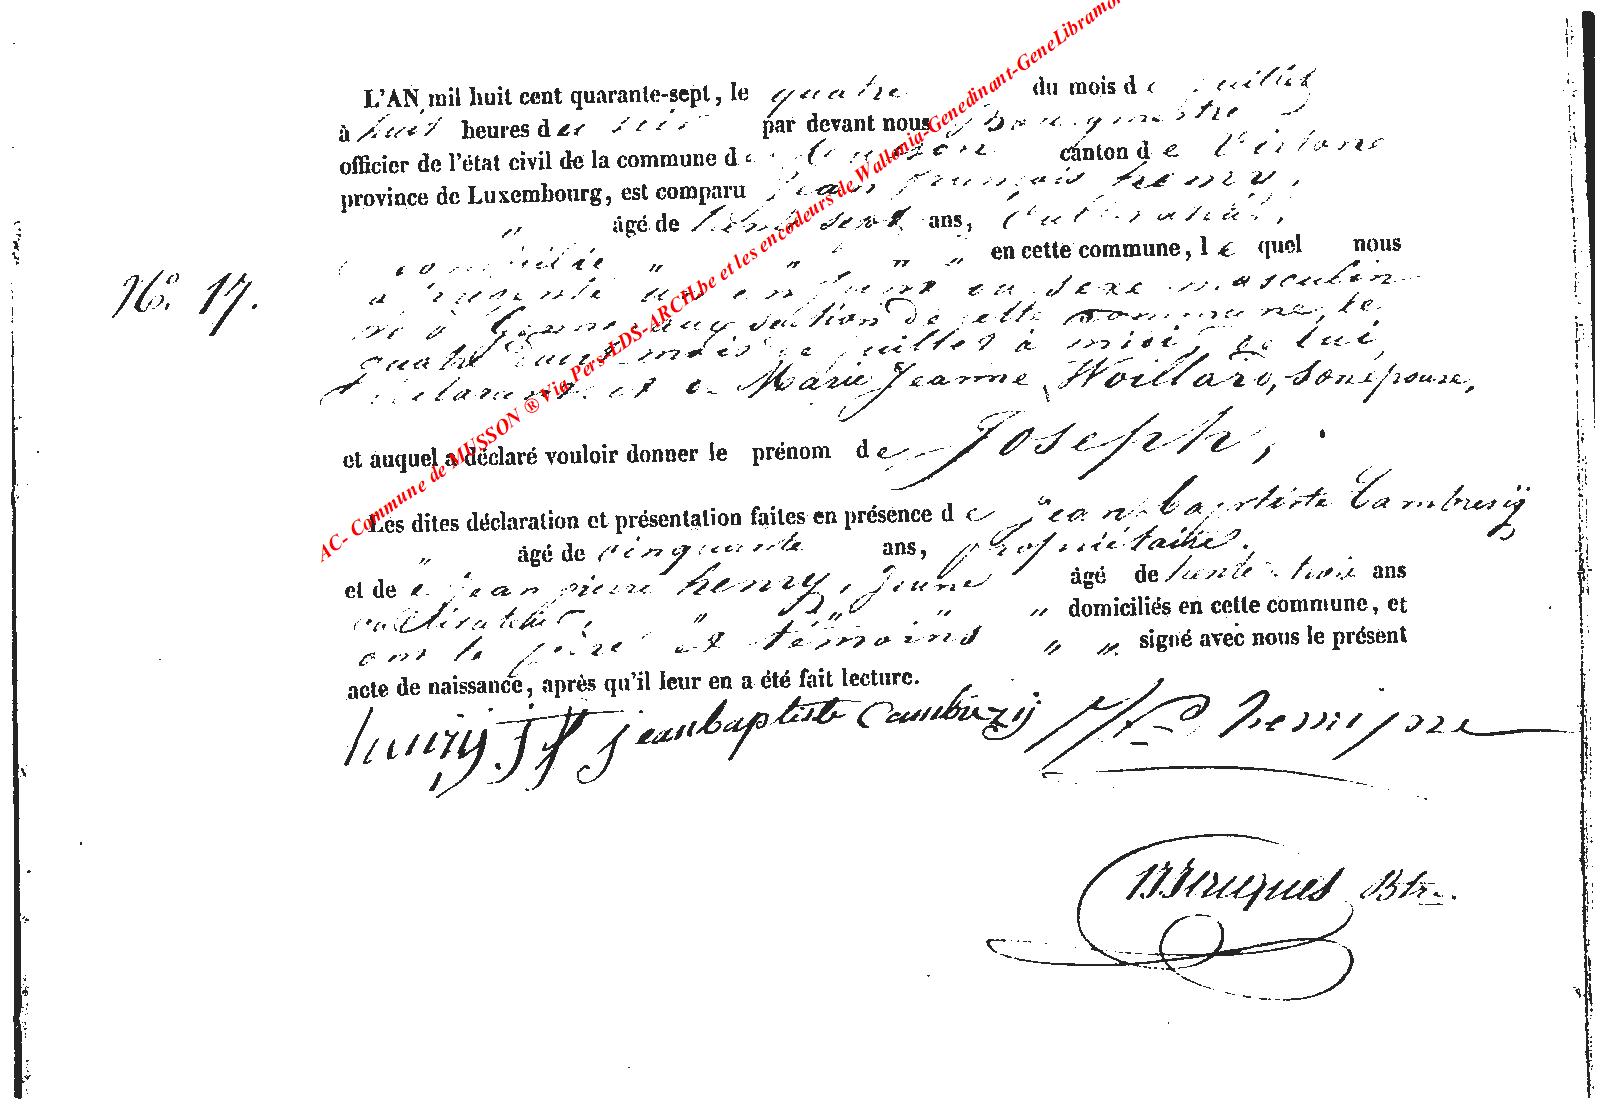 L'AN mil huit cent quarante-sept, le quatre du mois de juillet
à huit heures du soir par devant nous Bourgmestre
officier de l'état civil de la commune de Musson canton de Virton
province de Luxembourg, est comparu Jean françois henry,
" âgé de trente sept ans, Cultivateur,
domicilié " " " " en cette commune, lequel nous
N.o 17.
a présenté un enfant du sexe masculin
né à section de cette commune, le
quatre du mois de juillet à midi, de lui
déclarant et de Marie Jeanne Woillard, son épouse,
et auquel a déclaré vouloir donner le prénom de Joseph,
Les dites déclaration et présentation faites en présence de jean-baptiste Cambresÿ
" âgé de cinquante ans, propriétaire.
et de jean pierre henry, jeune âgé de trente-trois ans
cultivateur, " " " " domiciliés en cette commune, et
ont le père et témoins " " signé avec nous le présent
acte de naissance, après qu'il leur en a été fait lecture.
henry. J f jeanbaptiste Cambrezÿ henri jne
Btre.
AC- Commune de MUSSON ® Via Pers-LDS-ARCH.be et les encodeurs de Wallonia-Genedinant-GeneLibramo